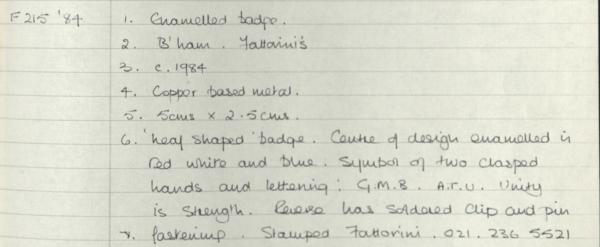 F215 '84 1. Enamelled badge.
2. B'ham. Fattorini's
3. c. 1984
4. Copper based metal.
5. 5cms x 2.5cms.
6. 'heaf shaped' badge. Centre of design enamelled in
red white and blue. Symbol of two clasped
hands and lettering: G.M.B. A.T.U. Unity
is Strength. Reverse has soldered clip and pin
7. fastening. Stamped Fattorini. 021. 236 5521